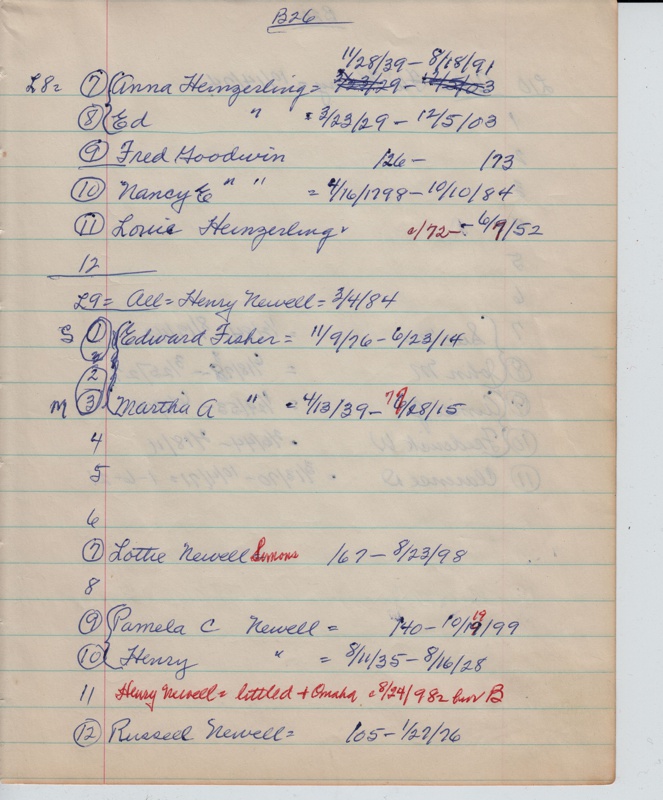 B26
11/28/39 - 8/18/91
L8= 7 Anna Heinzerling = 3/23/29 - 12/5/03
8 Ed " 3/23/29 - 12/5/03
9 Fred Goodwin /26 - /73
10 Nancy E " " = 4/16/1798 - 10/10/84
11 Heinzerling /72 - 6/9/52
12
L9 = All = Henry Newell = 3/4/84
S 1 Edward Fisher = 11/9/76 - 6/23/14
2
M 3 Martha A " = 4/13/39 - /28/15
4
5
6
7 Lottie Newell Simons /67 - 8/23/98
8
19
9 Pamela C Newell = /40 - 10/19/99
10 Henry " = 8/11/35 - 8/16/28
11 Henry Newell = + Omaha 8/24/98 = B
12 Russell Newell = /05 - 1/27/76